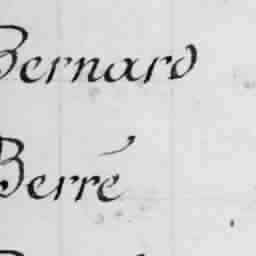 Bernard
Berré